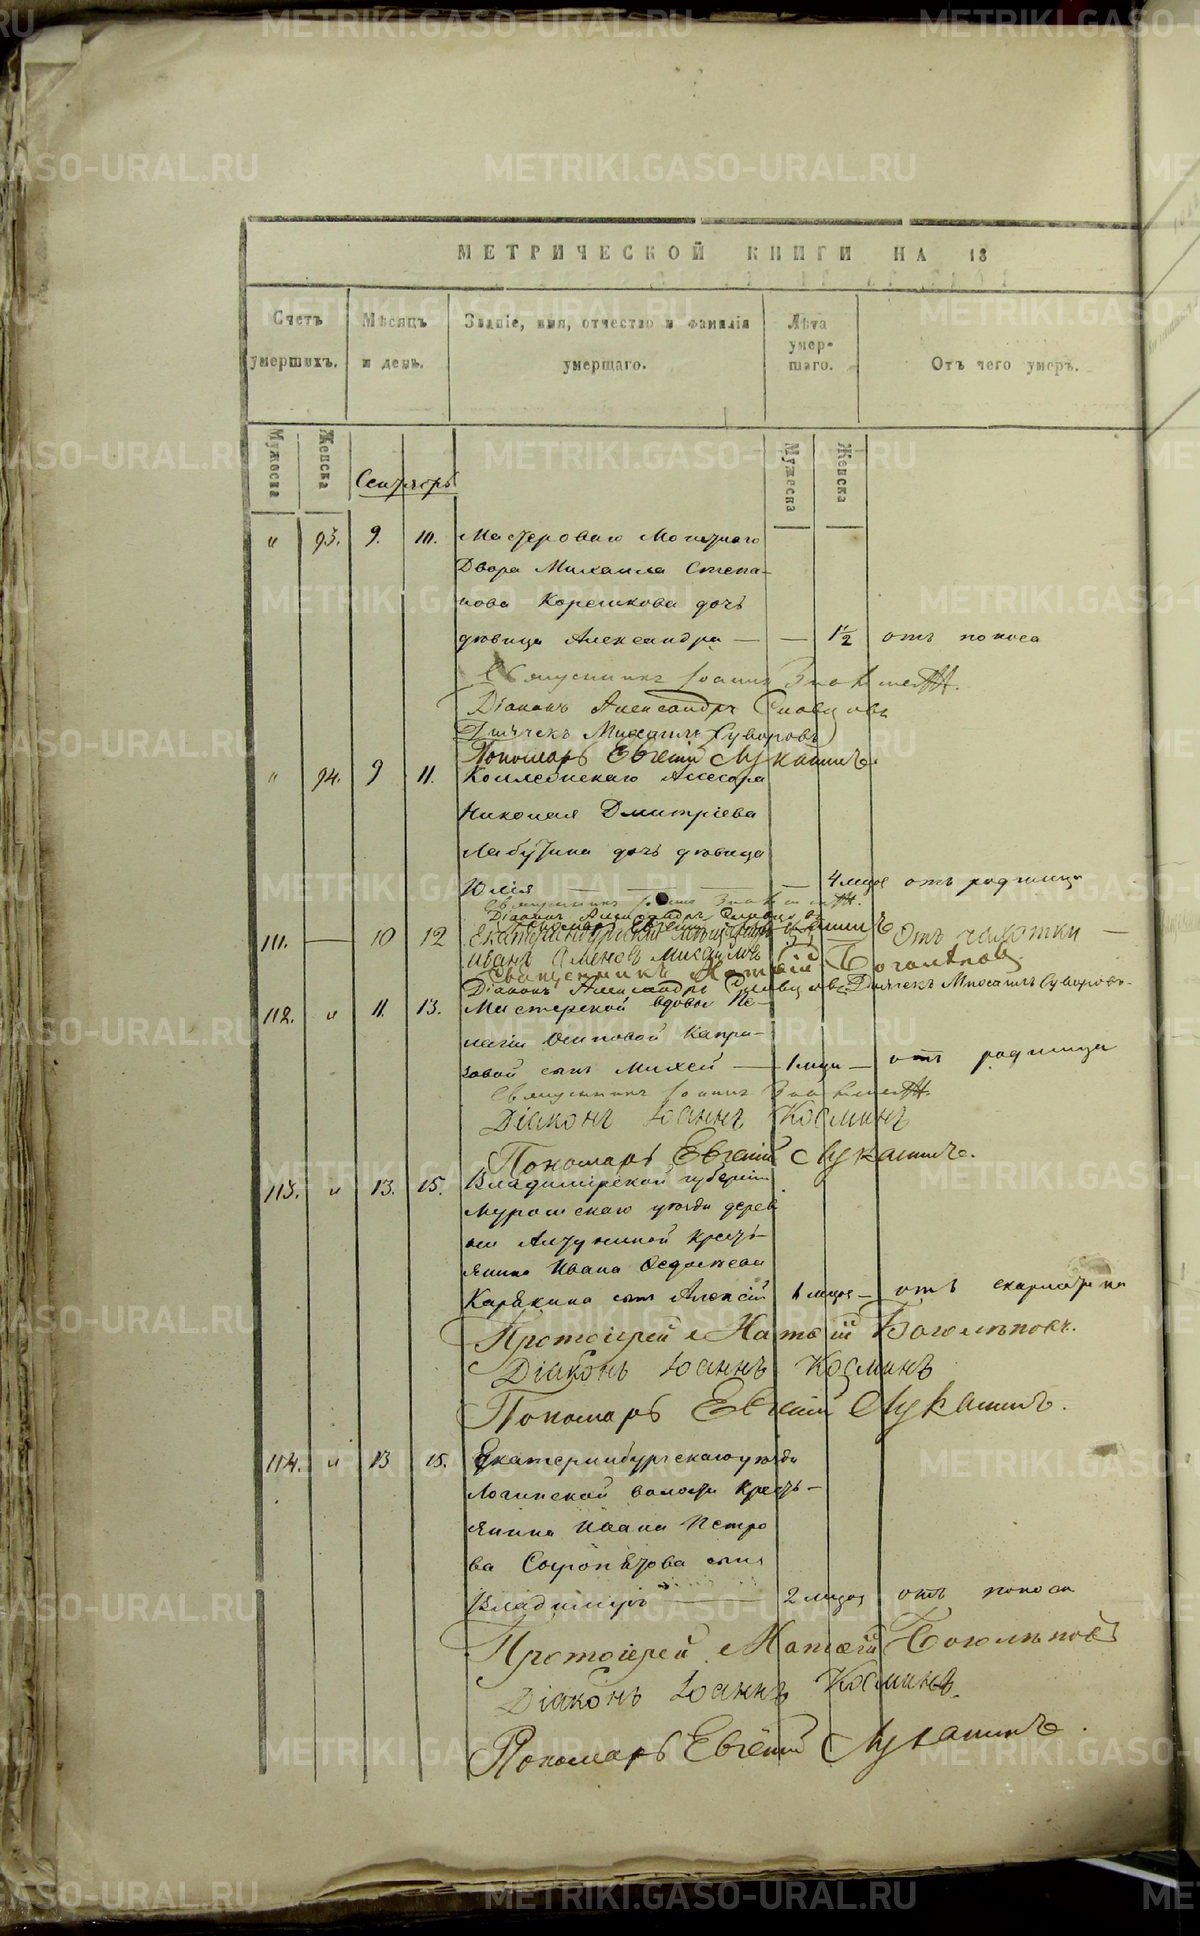 МЕТРИЧЕСКОЙ КНИГИ НА 18
Счетъ умершихъ.
Мѣсяцъ и день.
Званіе, имя, отчество и фамилія умершаго.
Лѣта умершаго.
Отъ чего умеръ.
Мужеска Женска
Сентябрь
Мужеска Женска
" 93. 9. 10. Мастероваго Монетнаго
Двора Михаила Степа-
нова Корешкова дочь
дѣвица Александра — — 1 1/2 отъ поноса
Священникъ Іоаннъ
Діаконъ Александръ Словцовъ
Дьячекъ Михаилъ Суворовъ
Пономарь Евгеній Лукашинъ.
" 94. 9 11. Коллежскаго Ассесора
Николая Дмитріева
Лабутина дочь дѣвица
Юлія — — — — 4 мцов отъ родимца
Священникъ Іоаннъ
Діаконъ Александръ Словцовъ
Пономарь Евгеній Лукашинъ
111. — 10 12 Екатеринбургскій Отъ чахотки —
Иванъ Михайловъ
Священникъ Матѳій Боголѣповъ
Діаконъ Александръ Словцовъ. Дьячекъ Михаилъ Суворовъ.
112. " 11. 13. Мастерской вдовы Пе-
лагіи Осиповой Капра-
ловой сынъ Михей — 1 мцъ — отъ родимца
Священникъ Іоаннъ
Діаконъ Іоаннъ Косминъ
Пономарь Евгеній Лукашинъ.
113. " 13. 15. Владимірской губерніи
Муромскаго уѣзда дерев
ни кресть-
янина Ивана
Карякина сынъ Алексій мцов — отъ скарлатины
Протоіерей Матѳій Боголѣповъ.
Діаконъ Іоаннъ Косминъ
Пономарь Евгеній Лукашинъ.
114. " 13 15. Екатеринбургскаго уѣзда
Логиновской волости кресть-
янина Ивана Петро
ва сынъ
Владиміръ — 2 мцов отъ поноса
Протоіерей Матѳій Боголѣповъ
Діаконъ Іоаннъ Косминъ.
Пономарь Евгеній Лукашинъ.
METRIKI.GASO-URAL.RU